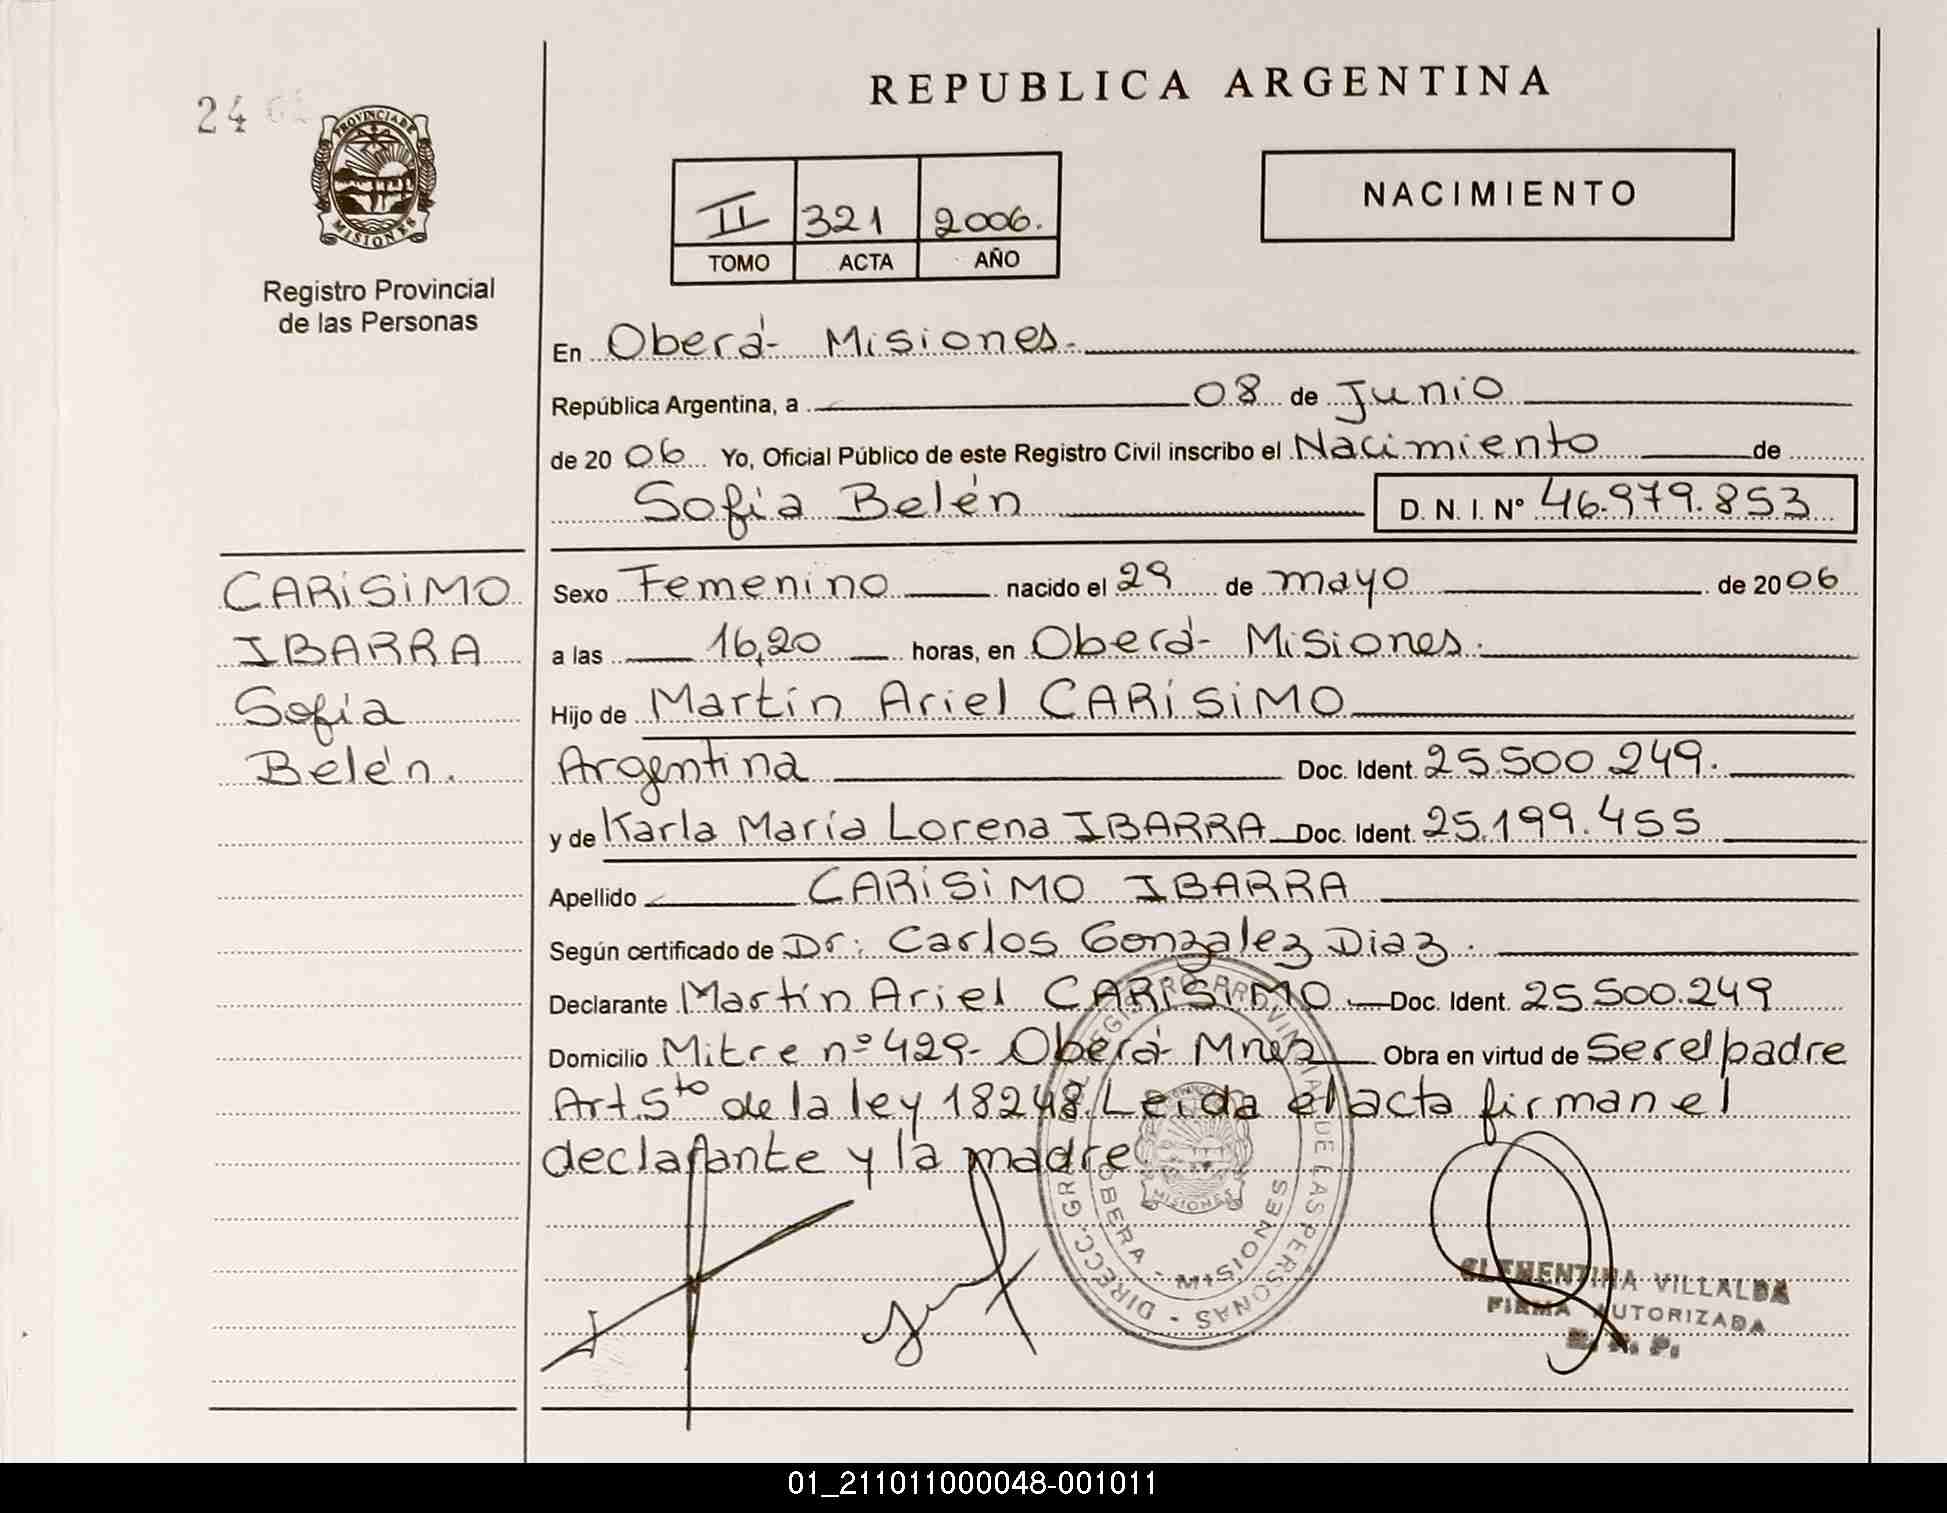 24
PROVINCIA DE
MISIONES
Registro Provincial
de las Personas
REPUBLICA ARGENTINA
II 321 2006.
TOMO ACTA AÑO
NACIMIENTO
En Oberá- Misiones.
República Argentina, a 08 de Junio
de 2006 Yo, Oficial Público de este Registro Civil inscribo el Nacimiento de
Sofía Belén D. N. I. Nº 46.979.853
CARiSiMO
IBARRA
Sofía
Belén.
Sexo Femenino nacido el 29 de mayo de 2006
a las 16,20 horas, en Oberá- Misiones.
Hijo de Martín Ariel CARiSiMO
Argentina Doc. Ident. 25.500.249.
y de Karla María Lorena IBARRA Doc. Ident. 25.199.455
Apellido CARiSiMO IBARRA
Según certificado de Dr: Carlos Gonzalez Diaz.
Declarante Martín Ariel CARiSiMO Doc. Ident. 25.500.249
Domicilio Mitre nº 429- Oberá- Mnes Obra en virtud de Ser el padre
Art. 5to de la ley 18248. Leida el acta firman el
declarante y la madre
DIRECC. GRAL. DEL REGISTRO PROVINCIAL DE LAS PERSONAS -
OBERA - MISIONES
MISIONES
CLEMENTINA VILLALBA
FIRMA AUTORIZADA
R. P. P.
01_211011000048-001011